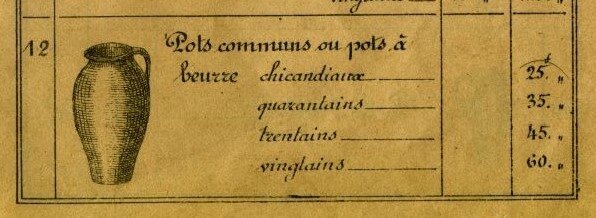 12
Pots communs ou pots à
beurre chicandiaux 25. "
quarantains 35. "
trentains 45. "
vinglains 60. "